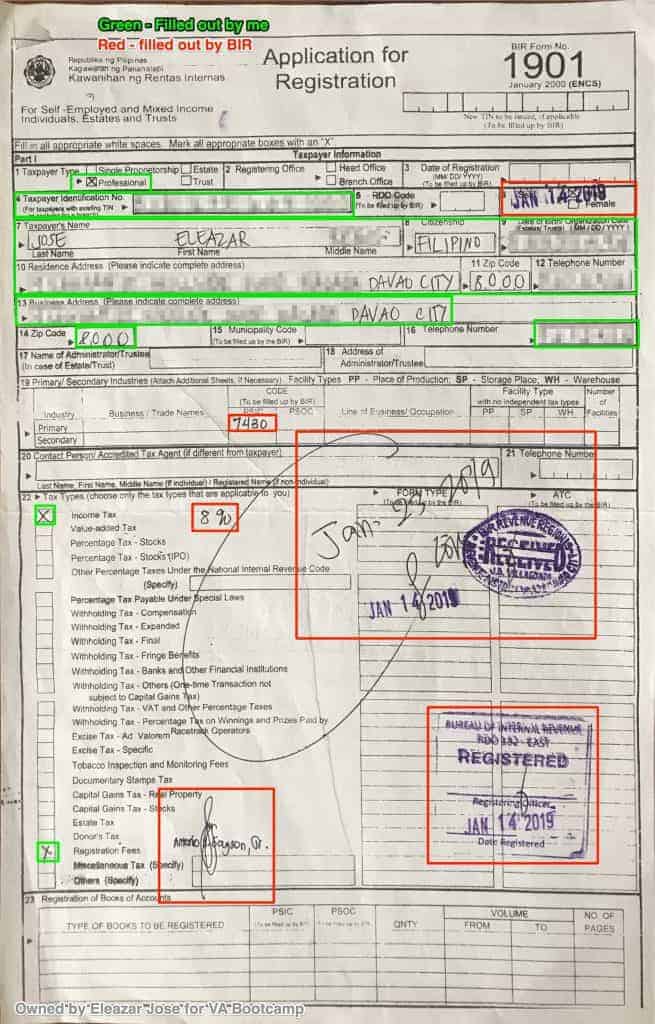 Green - Filled out by me
Red - filled out by BIR
Republika ng Pilipinas
Kagawaran ng Pananalapi
Kawanihan ng Rentas Internas
Application for
Registration
BIR Form No.
1901
January 2000 (ENCS)
For Self-Employed and Mixed Income
Individuals, Estates and Trusts
New TIN to be issued, if applicable
(To be filled up by BIR)
Fill in all appropriate white spaces. Mark all appropriate boxes with an "X"
Part I Taxpayer Information
1 Taxpayer Type Single Proprietorship Estate 2 Registering Office Head Office 3 Date of Registration
X Professional Trust Branch Office (To be filled up by BIR) (MM/ DD/ YYYY)
4 Taxpayer Identification No. 5 RDO Code JAN 14 2019
(For taxpayers with existing TIN (To be filled up by BIR) Female
7 Taxpayer's Name 8 Citizenship 9
JOSE ELEAZAR FILIPINO
Last Name First Name Middle Name
10 Residence Address (Please indicate complete address) 11 Zip Code 12 Telephone Number
DAVAO CITY 8000
13 Business Address (Please indicate complete address)
DAVAO CITY
14 Zip Code 8000 15 Municipality Code 16 Telephone Number
(To be filled up by the BIR)
17 Name of Administrator/Trustee 18 Address of
(In case of Estate/Trust) Administrator/Trustee
19 Primary/ Secondary Industries (Attach Additional Sheets, if Necessary) Facility Types PP - Place of Production; SP - Storage Place; WH - Warehouse
CODE Facility Type Number
(To be filled up by BIR) with no independent tax types of
Industry Business / Trade Names PSIC PSOC Line of Business/ Occupation PP SP WH Facilities
Primary 7430
Secondary
20 Contact Person/ Accredited Tax Agent (if different from taxpayer) 21 Telephone Number
Last Name, First Name, Middle Name (if individual) / Registered Name (if non-individual)
22 Tax Types (choose only the tax types that are applicable to you) FORM TYPE ATC
(To be filled up by the BIR) (To be filled up by the BIR)
X Income Tax 8%
Value-added Tax
Percentage Tax - Stocks
Percentage Tax - Stocks (IPO)
Other Percentage Taxes Under the National Internal Revenue Code
(Specify)
RECEIVED
Percentage Tax Payable Under Special Laws
JAN 14 2019
Withholding Tax - Compensation
Withholding Tax - Expanded
Withholding Tax - Final
Withholding Tax - Fringe Benefits
Withholding Tax - Banks and Other Financial Institutions
Withholding Tax - Others (One-time Transaction not
subject to Capital Gains Tax)
Withholding Tax - VAT and Other Percentage Taxes
Withholding Tax - Percentage Tax on Winnings and Prizes Paid by
Racetrack Operators
Excise Tax - Ad Valorem
Excise Tax - Specific
Tobacco Inspection and Monitoring Fees
Documentary Stamps Tax
Capital Gains Tax - Real Property
Capital Gains Tax - Stocks
Estate Tax
Donor's Tax
X Registration Fees
Miscellaneous Tax (Specify)
Others (Specify)
BUREAU OF INTERNAL REVENUE
EAST
REGISTERED
Registering Officer
JAN 14 2019
Date Registered
23 Registration of Books of Accounts
TYPE OF BOOKS TO BE REGISTERED PSIC PSOC QNTY VOLUME NO. OF
(To be filled up by BIR) (To be filled up by BIR) FROM TO PAGES
Owned by Eleazar Jose for VA Bootcamp